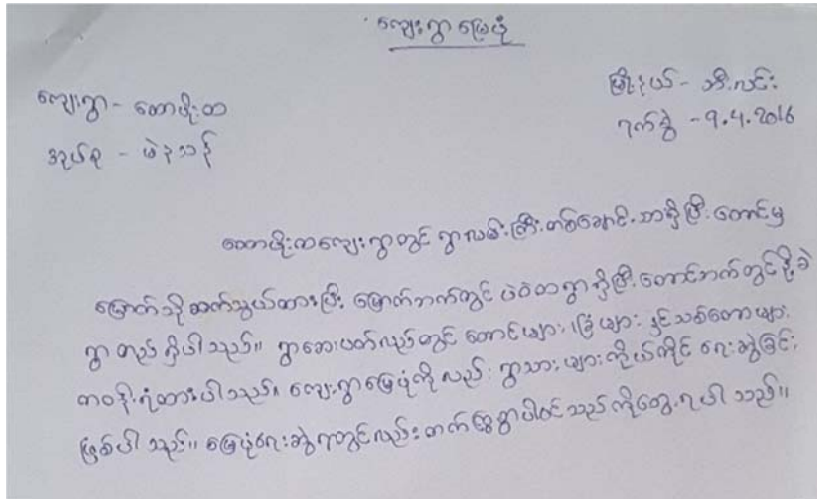 ကျေးရွာ မြေပုံ
မြို့နယ် - ဘီးလင်း
ကျေးရွာ - တောဖိုးတ
ရက်စွဲ - 9.4.2016
အုပ်စု - မဲနသန်
တောဖိုးတကျေးရွာတွင် ရွာလမ်းကြီး တစ်ချောင်းသာရှိပြီး တောင်မှ
မြောက်သို့ ဆက်သွယ်ထားပြီး မြောက်ဘက်တွင် ဖဲဝဲတရွာရှိပြီး တောင်ဘက်တွင်
ရွာ တည်ရှိပါသည်။ ရွာဘေးပတ်လည်တွင် တောင်များ၊ ခြံများ နှင့်သစ်တောများ
ကာဝန်းရံထားပါသည်။ ကျေးရွာမြေပုံကိုလည်း ရွာသားများကိုယ်တိုင် ရေးဆွဲခြင်း
ဖြစ်ပါသည်။ မြေပုံရေးဆွဲရာတွင်လည်း တက်ကြွစွာပါဝင်သည်ကိုတွေ့ရပါသည်။